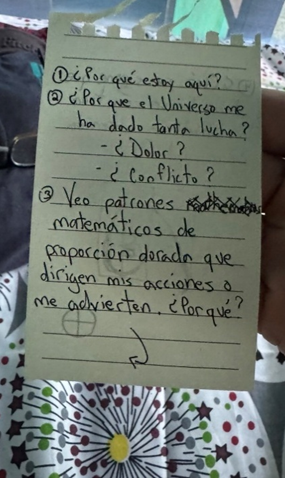 ① ¿Por qué estoy aquí?
② ¿Por que el Universo me
ha dado tanta lucha?
- ¿Dolor?
- ¿Conflicto?
③ Veo patrones
matemáticos de
proporción dorada que
dirigen mis acciones o
me advierten. ¿Porqué?